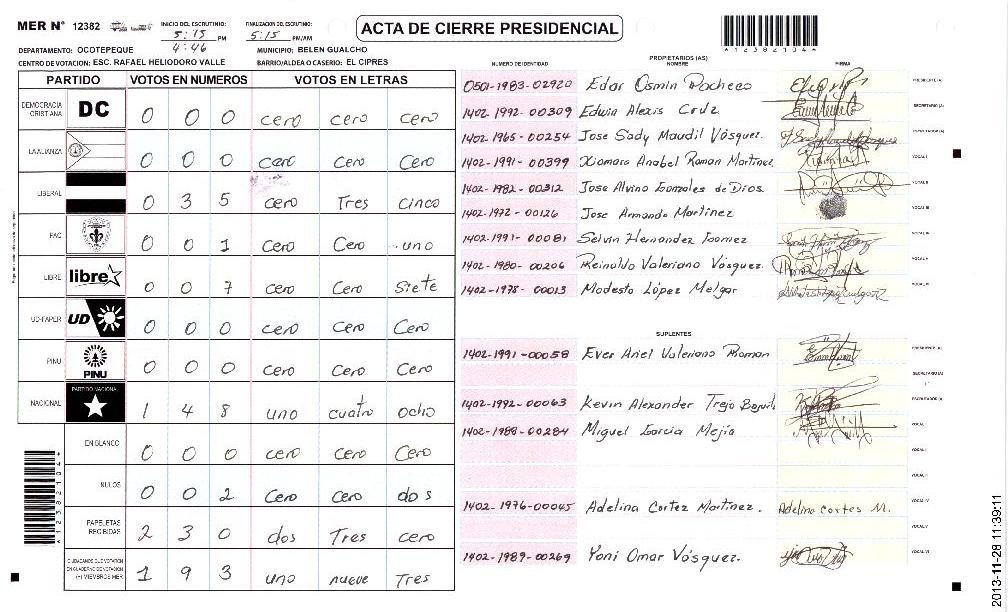 MER Nº 12382
INICIO DEL ESCRUTINIO:
5:15 PM
4:46
FINALIZACION DEL ESCRUTINIO:
5:15 PM/AM
ACTA DE CIERRE PRESIDENCIAL
DEPARTAMENTO: OCOTEPEQUE
MUNICIPIO: BELEN GUALCHO
CENTRO DE VOTACION: ESC. RAFAEL HELIODORO VALLE
BARRIO/ALDEA O CASERIO: EL CIPRES
PARTIDO VOTOS EN NUMEROS VOTOS EN LETRAS
DEMOCRACIA CRISTIANA DC 0 0 0 cero cero cero
LA ALIANZA 0 0 0 cero Cero Cero
LIBERAL 0 3 5 cero Tres cinco
PAC 0 0 1 cero Cero uno
LIBRE libre 0 0 7 cero Cero siete
UD-FAPER UD 0 0 0 cero cero Cero
PINU PINU 0 0 0 cero Cero Cero
NACIONAL PARTIDO NACIONAL 1 4 8 uno cuatro ocho
EN BLANCO 0 0 0 cero Cero Cero
NULOS 0 0 2 Cero cero dos
PAPELETAS RECIBIDAS 2 3 0 dos Tres cero
CIUDADANOS QUE VOTARON
EN CUADERNO DE VOTACION
(+) MIEMBROS MER 1 9 3 uno nueve Tres
PROPIETARIOS (AS)
NUMERO DE IDENTIDAD NOMBRE FIRMA
0501-1983-02920 Edar Osmin Pacheco PRESIDENTE (A)
1402-1992-00309 Edwin Alexis Cruz SECRETARIO (A)
1402-1965-00254 Jose Sady Maudil Vásquez. ESCRUTADOR (A)
1402-1991-00399 Xiomara Anabel Roman Martinez VOCAL I
1402-1982-00312 Jose Alvino Gonzales de Dios VOCAL II
1402-1972-00126 Jose Armando Martinez VOCAL III
1402-1991-00081 Selvin Hernandez Gomez VOCAL IV
1402-1980-00206 Reinaldo Valeriano Vásquez. VOCAL V
1402-1978-00013 Modesto López Melgar VOCAL VI
SUPLENTES
1402-1991-00058 Ever Ariel Valeriano Roman PRESIDENTE (A)
SECRETARIO (A)
1402-1992-00063 Kevin Alexander Trejo ESCRUTADOR (A)
1402-1988-00284 Miguel Garcia Mejía VOCAL I
VOCAL II
1402-1976-00045 Adelina Cortez Martinez. Adelina Cortes M. VOCAL IV
VOCAL V
1402-1989-00269 Yoni Omar Vásquez. VOCAL VI
2013-11-28 11:39:11